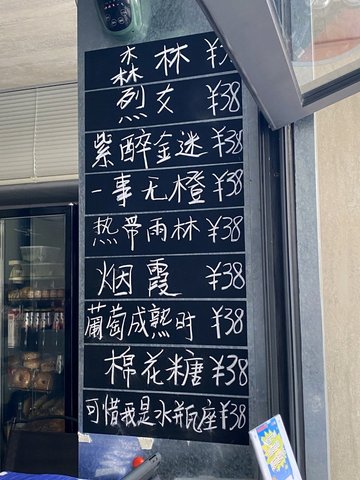 森林 ¥3
烈女 ¥38
紫醉金迷 ¥38
一事无橙 ¥38
热带雨林 ¥38
烟霞 ¥38
葡萄成熟时 ¥38
棉花糖 ¥38
可惜我是水瓶座 ¥38